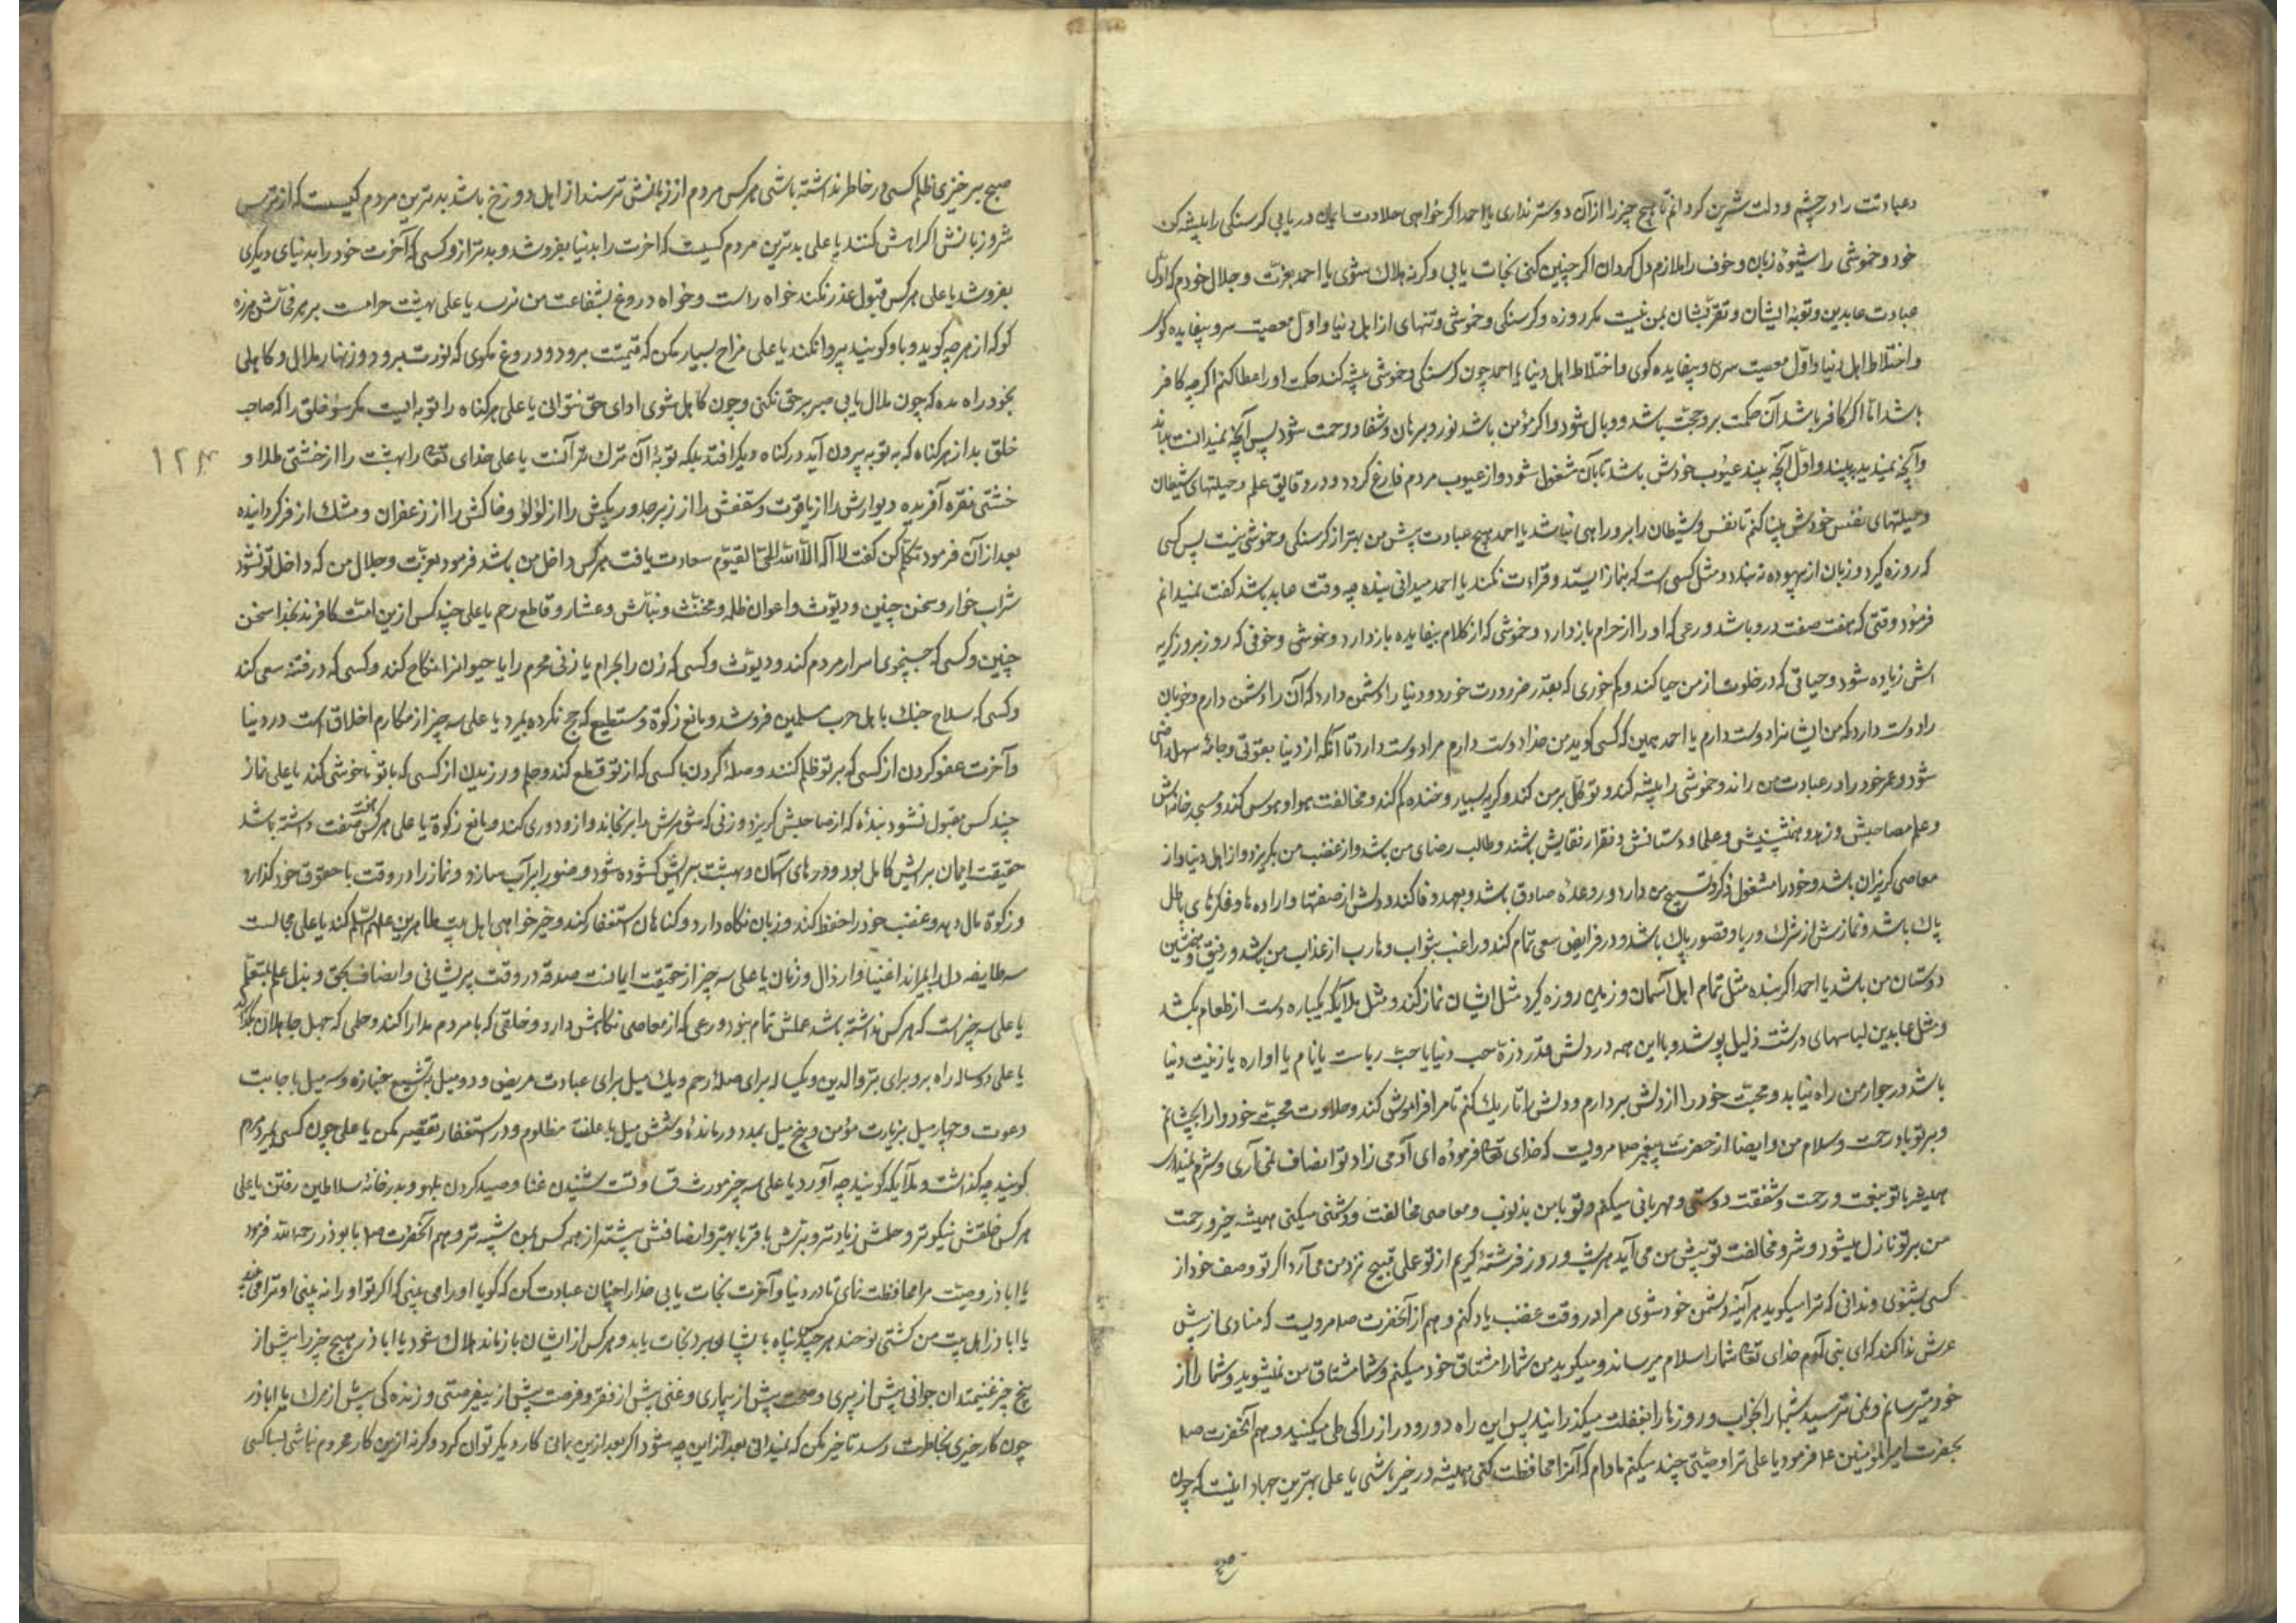 دعبادتت را در چشم و دلت شیرین کردانم تا هیچ چیز را از آن دوستر نداری یا احمد اکر خواهی حلاوت ایمان دریابی کرسنکی را پیشه کن
خود و خموشی را شیوهٔ زبان و خوف را ملازم دل کردان اکر چنین کنی نجات یابی و کرنه هلاک شوی یا احمد بعزت و جلال خودم که اول
عبادت عابدین و توبه ایشان و تقربشان بمن نیست مکر روزه و کرسنکی و خموشی و تنهای از اهل دنیا و اول معصیت سیری و بیفایده کوی
و اختلاط اهل دنیا و اول معصیت سیری و بیفایده کوی و اختلاط اهل دنیا یا احمد چون کرسنکی و خموشی پیشه کند حکمت او را عطا کنم اکرچه کافر
باشد اما اکر کافر باشد آن حکمت برو حجت باشد و وبال شود و اکر مؤمن باشد نور و برهان و شفا و رحمت شود پس آنچه نمیدانست بداند
و آنچه نمیدید ببیند و اول آنچه بیند عیوب خودش باشد تا بآن مشغول شود و از عیوب مردم فارغ کردد و در دقایق علم و حیلتهای شیطان
و حیلتهای نفس خودش بینا کنم تا نفس و شیطان را برو راهی نباشد یا احمد هیچ عبادت پیش من بهتر از کرسنکی و خموشی نیست پس کسی
که روزه کیرد و زبان از بیهوده نه بندد مثل کسی است که بنماز ایستد و قراءت نکند یا احمد میدانی بنده چه وقت عابد باشد کفت نمیدانم
فرمود وقتی که هفت صفت درو باشد ورعی که او را از حرام بازدارد و خموشی که از کلام بیفایده بازدارد و خموشی و خوفی که روز بروز کریه
اش زیاده شود و حیائی که در خلوت از من حیا کند و کم خوری که بقدر ضرورت خورد و دنیا را دشمن دارد که آن را دشمن دارم و خوبان
را دوست دارد که من ایشانرا دوست دارم یا احمد همین که کسی کوید من خدا دوست دارم مرا دوست دارد تا آنکه از دنیا بقوتی و جامهٔ سهل راضی
شود و عمر خود را در عبادت من راند و خموشی را پیشه کند و توکل بر من کند و کریه بسیار و خنده کم کند و مخالفت هوا و هوس کند و مسجد خانه‌اش
و علم مصاحبش و زهد همنشینش و علما دوستانش و فقرا رفقایش باشند و طالب رضای من باشد و از غضب من بکریزد و از اهل دنیا و از
معاصی کریزان باشد و خود را مشغول ذکر و تسبیح من دارد و در وعده صادق باشد و بعهد وفا کند و دلش از صفتها و اراده ها و فکرهای باطل
پاک باشد و نمازش از شرک و ریا و قصور پاک باشد و در فرایض سعی تمام کند و راغب بثواب و هارب از عذاب من باشد و رفیق و همنشین
دوستان من باشد یا احمد اکر بنده مثل تمام اهل آسمان و زمین روزه کیرد مثل ایشان نماز کند و مثل ملایکه یکباره دست از طعام بکشد
و مثل عابدین لباسهای درشت ذلیل پوشد و با این همه در دلش قدر ذرهٔ حب دنیا یا حب ریاست یا نام یا اواره یا زینت دنیا
باشد در جوار من راه نیابد و محبت خود را از دلش بردارم و دلش را تاریک کنم تا مرا فراموش کند و حلاوت محبت خود را نچشانم
و بر تو باد رحمت و سلام من و ایضا از حضرت پیغمبر صلم مرویست که خدای تعا فرموده ای آدمی زاد تو انصاف نمی آری و شرم نمیداری
همیشه با تو بنعمت و رحمت و شفقت دوستی و مهربانی میکنم و تو با من بذنوب و معاصی مخالفت و دشمنی میکنی همیشه خیر و رحمت
من بر تو نازل میشود و شر و مخالفت تو پیش من می آید هر شب و روز فرشتهٔ کریم از تو عملی قبیح نزد من می آرد اکر تو وصف خود از
کسی بشنوی و ندانی که ترا میکوید هر آینه دشمن خود شوی مرا در وقت غضب یاد کنم و هم از آنحضرت صلم مرویست که منادی از پیش
عرش ندا کند که ای بنی آدم خدای تعا شما را سلام میرساند و میکوید من شما را مشتاق خود میکنم و شما مشتاق من نمیشوید و شما را از
خود میترسانم و نمی ترسید شبها را بخواب و روزها را بغفلت میکذرانید پس این راه دور و دراز را کی طی میکنید و هم آنحضرت صلم
بحضرت امیرالمؤمنین ع فرمود یا علی ترا وصیتی چند میکنم مادام که آنرا محافظت کنی همیشه در خیر باشی یا علی بهترین جهاد انیست که چون
صبح
صبح برخیزی ظلم کسی در خاطر نداشته باشی هر کس مردم از زبانش ترسند از اهل دوزخ باشد بدترین مردم کسیست که از ترس
شر و زبانش اکرامش کنند یا علی بدترین مردم کسیست که اخرت را بدنیا بفروشد و بدتر ازو کسی که آخرت خود را بدنیای دیکری
بفروشد یا علی هر کس قبول عذر نکند خواه راست و خواه دروغ بشفاعت من نرسد یا علی بهشت حرامست بر هر فحاش هرزه
کو که از هر چه کوید و با و کویند پروا نکند یا علی مزاح بسیار مکن که قیمتت برود و دروغ مکوی که نورت ببرد و زنهار ملال و کاهلی
بخود راه مده که چون ملال یابی صبر بر حق نکنی و چون کاهل شوی ادای حق نتوانی یا علی هر کناه را توبه ایست مکر سوء خلق را که صاحب
خلق بد از هر کناه که به توبه بیرون آید در کناه دیکر افتد بلکه توبهٔ آن ترک تر آنست یا علی خدای تعا را بهشت را از خشتی طلا و
۱۲۴
خشتی نقره آفریده دیوارش را از یاقوت و سقفش را از زبرجد و ریکش را از لؤلؤ و خاکش را از زعفران و مشک از فر کردانیده
بعد از آن فرمود تکلم کن کفت لا اله الا الله الحی القیوم سعادت یافت هر کس داخل من باشد فرمود بعزت و جلال من که داخل تو نشود
شراب خوار و سخن چین و دیوث و اعوان ظلمه و مخنث و نباش و عشار و قاطع رحم یا علی چند کس از این امت کافرند بخدا سخن
چین و کسی که جستجوی اسرار مردم کند و دیوث و کسی که زن را بحرام یا زنی محرم را یا حیوانرا نکاح کند و کسی که در فتنه سعی کند
و کسی که سلاح جنک باهل حرب مسلمین فروشد و مانع زکوة و مستطیع که حج نکرده بمیرد یا علی سه چیز از مکارم اخلاق است در دنیا
و آخرت عفو کردن از کسی که بر تو ظلم کنند و صلهٔ کردن با کسی که از تو قطع کند و حلم ورزیدن از کسی که با تو ناخوشی کند یا علی نماز
چند کس مقبول نشود بندهٔ که از صاحبش کریزد و زنی که شوهرش را برنجاند و ازو دوری کند و مانع زکوة یا علی هر کس هفت صفت داشته باشد
حقیقت ایمان برایش کامل بود و درهای آسمان و بهشت برایش کشوده شود وضو را بر آب سازد و نماز را در وقت با حقوق خود کذارد
و زکوة مال دهد و غضب خود را حفظ کند و زبان نکاه دارد و کناهان استغفار کند و خیر خواهی اهل بیت طاهرین علیهم السلم کند یا علی مجالست
سه طایفه دل را بمیراند اغنیا و ارذال و زنان یا علی سه چیز از حقیقت ایمانست صدقه در وقت پریشانی و انصاف بحق و بذل علم بمتعلم
یا علی سه چیزست که هر کس نداشته باشد عملش تمام نبود ورعی که از معاصی نکاهش دارد و خلقی که با مردم مدارا کند و حلمی که جهل جاهلان بکذراند
یا علی دو ساله راه برو برای بر والدین و یکساله برای صلهٔ رحم و یک میل برای عیادت مریض و دو میل به تشییع جنازه و سه میل باجابت
دعوت و چهار میل بزیارت مؤمن و پنج میل بمدد درماندهٔ و شش میل باعلفت مظلوم و در استغفار تقصیر مکن یا علی چون کسی بمیرد مردم
کویند چه کذاشت و ملایکه کویند چه آورد یا علی سه چیز مورث قساوتست شنیدن غنا و صید کردن بلهو و بدر خانهٔ سلاطین رفتن یا علی
هر کس خلقش نیکوتر و حلمش زیادتر و برش باقربا بهتر و انصافش بیشتر از همه کس بمن شبیه تر و هم آنحضرت صلم با بوذر رحمه الله فرمود
یا اباذر وصیت مرا محافظت نمای تا در دنیا و آخرت نجات یابی خدا را چنان عبادت کن که کویا او را می بینی که اکر تو او را نه بینی او ترا می بیند
یا اباذر اهل بیت من کشتی نوحند هر چند پناه با یشان برد نجات یابد و هر کس از ایشان بازماند هلاک شود یا اباذر پنج چیز را پیش از
پنج چیز غنیمت دان جوانی پیش از پیری و صحت پیش از بیماری و غنی پیش از فقر و فرصت پیش از بیفرصتی و زنده کی پیش از مرک یا اباذر
چون کار خیری بخاطرت رسد تاخیر مکن که نمیدانی بعد از این چه شود اکر بعد ازین بمانی کار دیکر توان کرد و کرنه ازین کار محروم نباشی بسا کسی